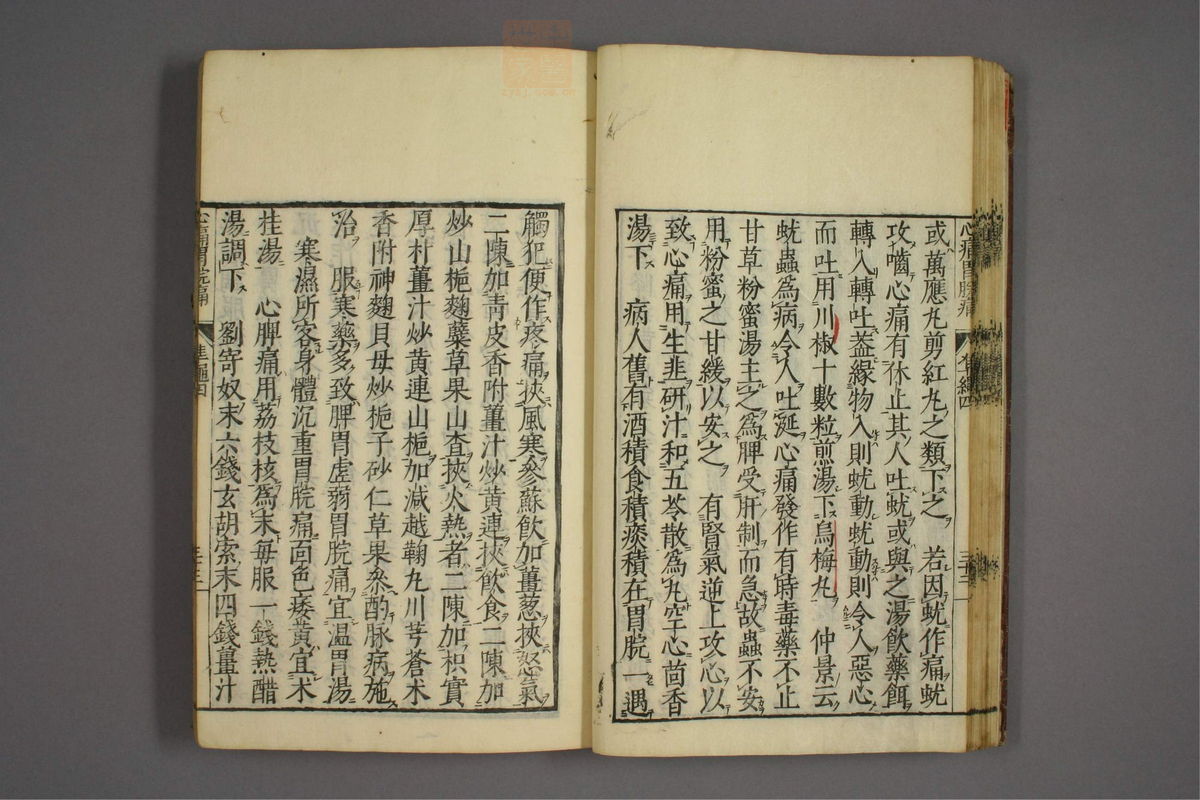 心痛胃脘痛
準繩四
三十三
或萬應丸剪紅丸之類下之　若因蚘作痛蚘
攻嚙心痛有休止其人吐蚘或與之湯飲藥餌
轉入轉吐葢緣物入則蚘動蚘動則令人惡心
而吐用川椒十數粒煎湯下烏梅丸　仲景云
蚘蟲爲病令人吐涎心痛發作有時毒藥不止
甘草粉蜜湯主之爲脾受肝制而急故蟲不安
用粉蜜之甘緩以安之　有腎氣逆上攻心以
致心痛用生韭研汁和五苓散爲丸空心茴香
湯下　病人舊有酒積食積痰積在胃脘一遇
觸犯便作疼痛挾風寒參蘇飲加薑葱挾怒氣
二陳加青皮香附薑汁炒黄連挾飲食二陳加
炒山梔麴糵草果山査挾火熱者二陳加枳實
厚朴薑汁炒黄連山梔加減越鞠丸川芎蒼朮
香附神麴貝母炒梔子砂仁草果叅酌脉病施
治　服寒藥多致脾胃虚弱胃脘痛宜温胃湯
寒濕所客身體沉重胃脘痛面色痿黄宜朮
桂湯　心脾痛用荔枝核爲末每服一錢熱醋
湯調下　劉寄奴末六錢玄胡索末四錢薑汁
心痛胃脘痛
準繩四
三十三